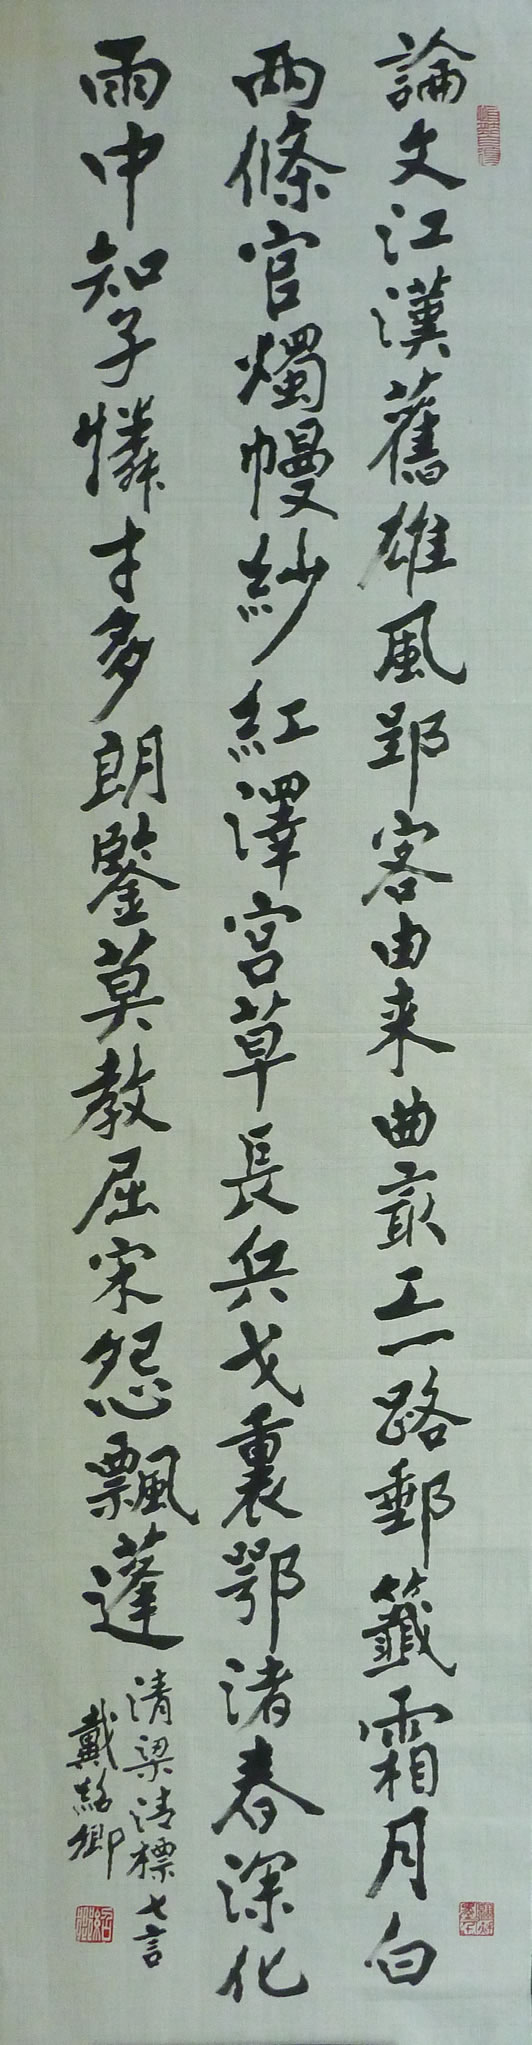 論文江漢舊雄風郢客由来曲最工一路郵籤霜月白
兩條官燭幔紗紅澤宮草長兵戈裏鄂渚春深化
雨中知子憐才多朗鑒莫教屈宋怨飄蓬
清梁清標七言
戴紹卿